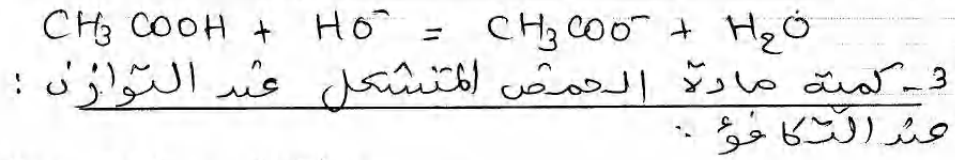 CH₃ COOH + HO⁻ = CH₃ COO⁻ + H₂O
3- كمية مادة الحمض المتشكل عند التوازن :
عند التكافؤ :